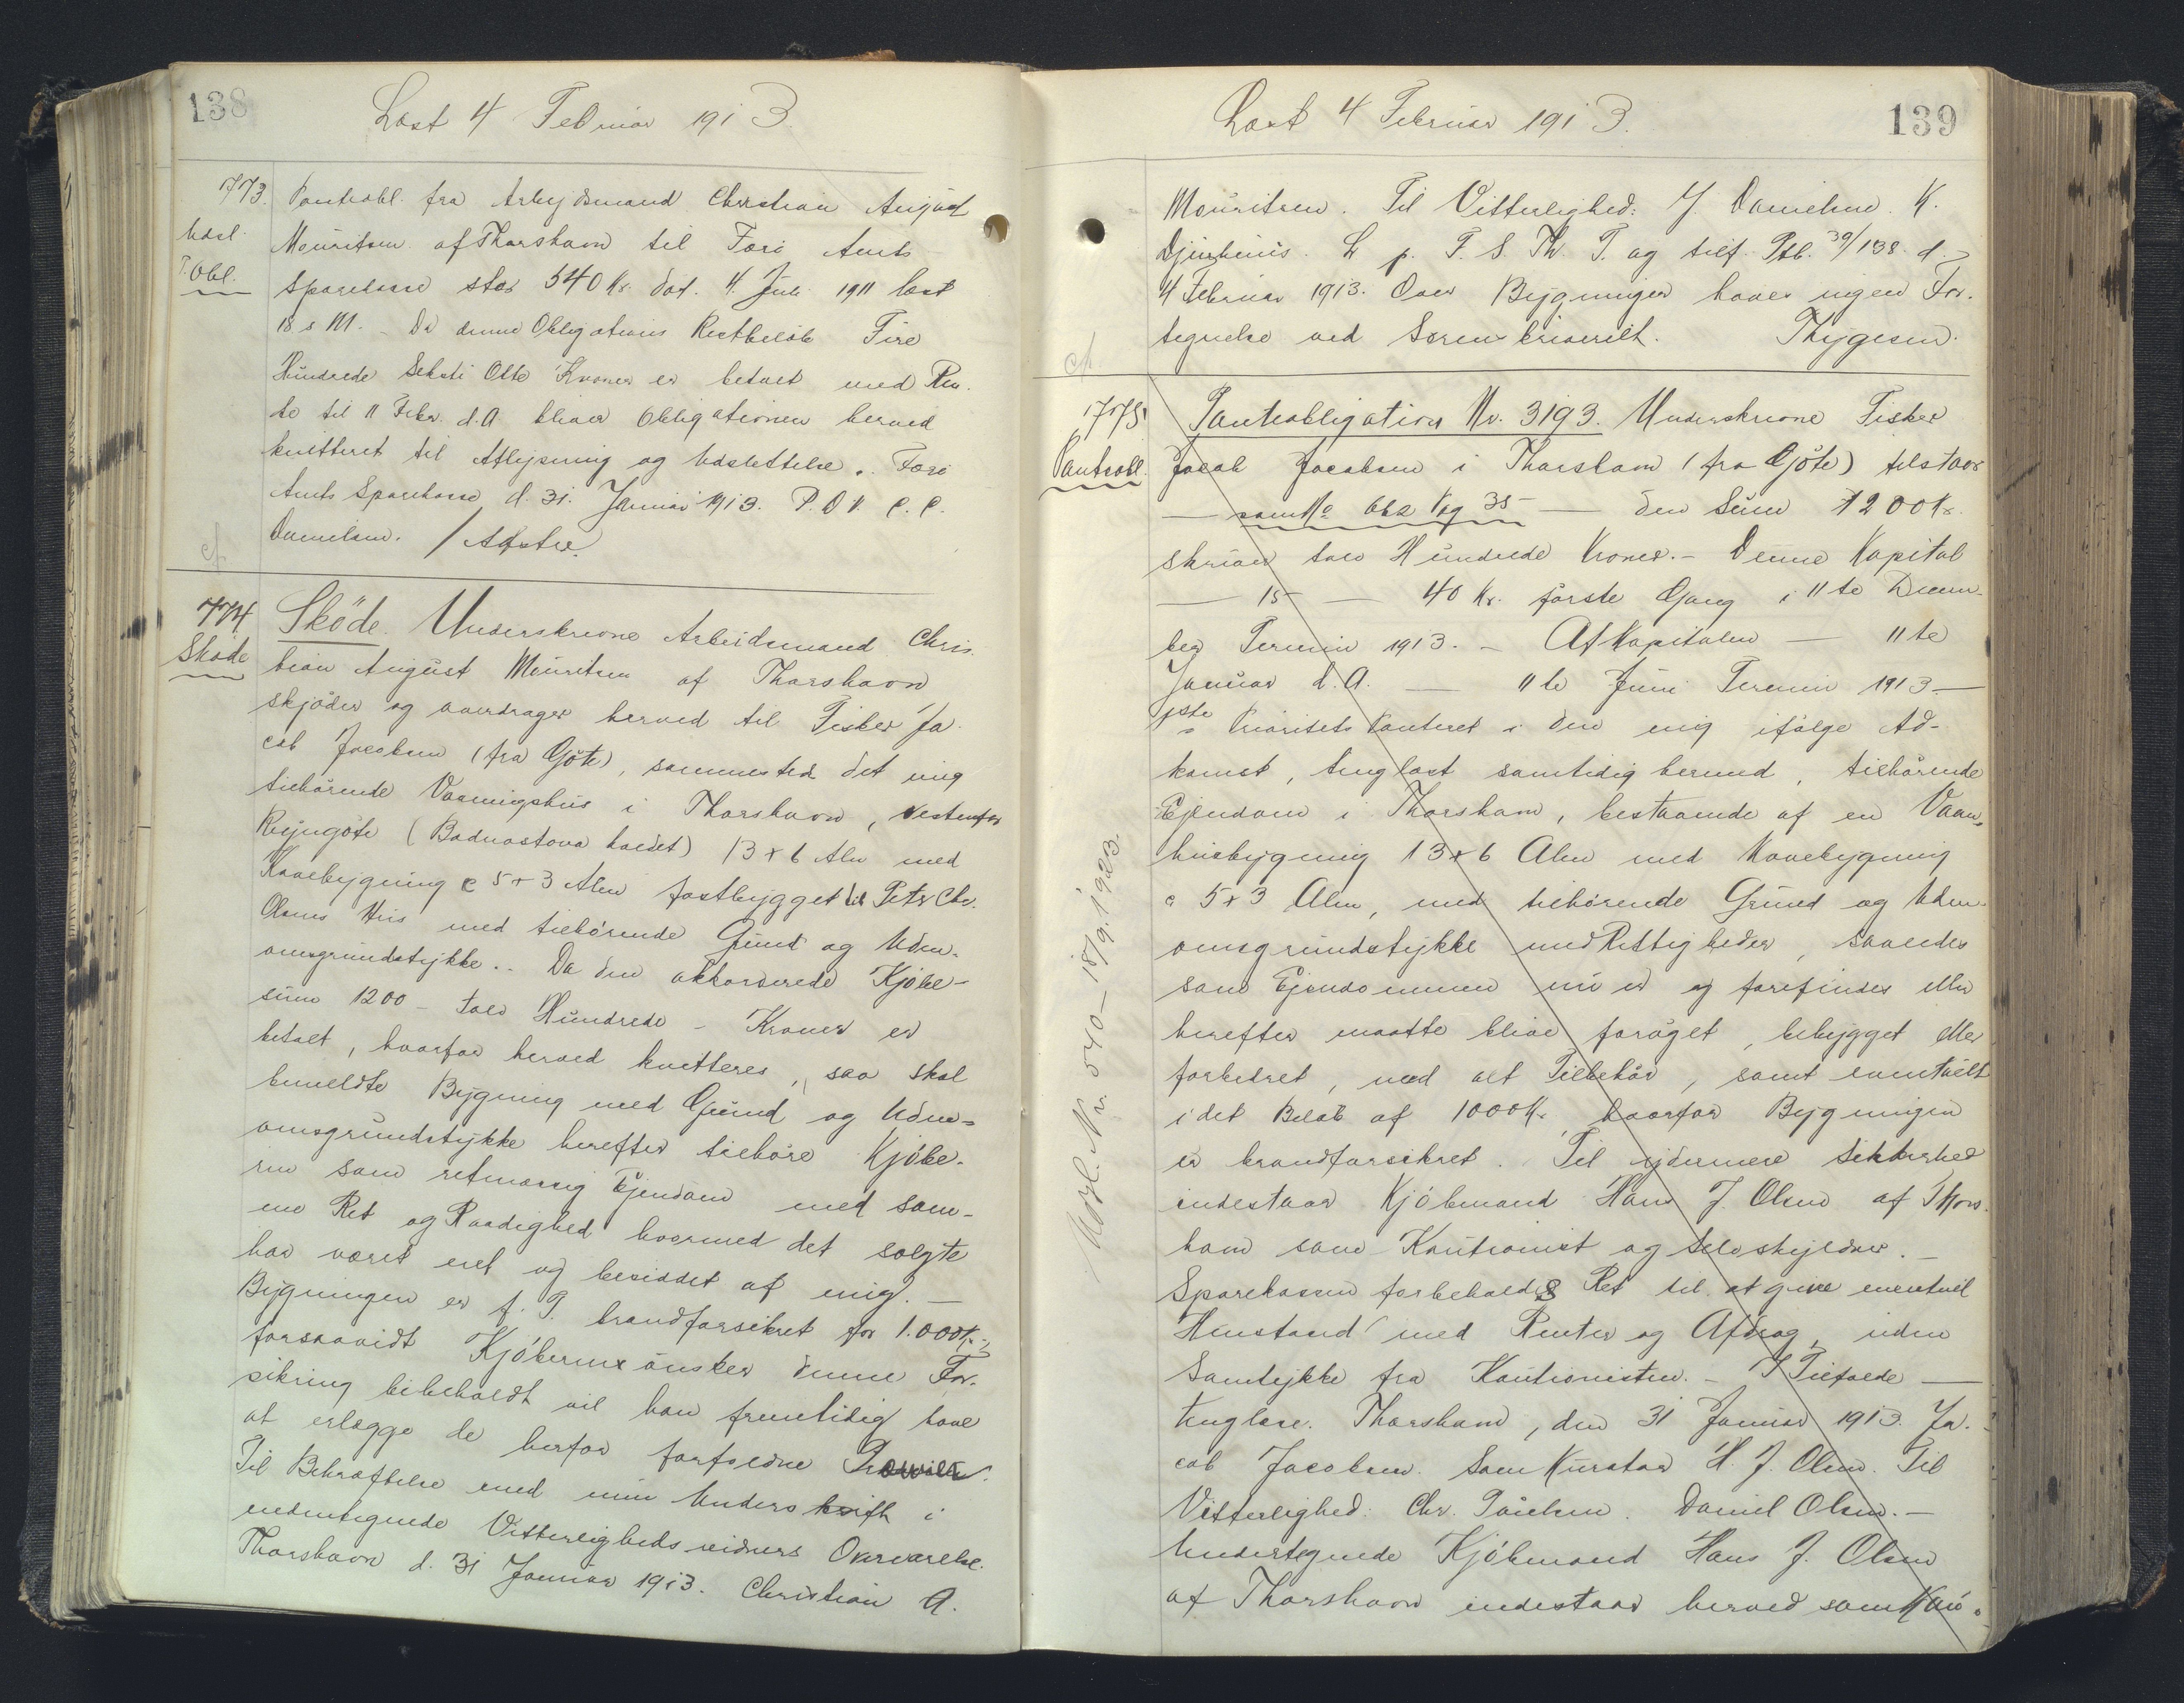 138
Læst 4 Februar 1913.
773.
Udsl.
P.Obl.
Pantobl. fra Arbejdsmand Christian August
Mouritsen af Thorshavn til Færø Amts
Sparekasse stor 540 Kr. dat. 4. Juli 1911 læst
18 s M. - Da denne Obligations Restbeløb Fire
Hundrede Seksti Otte Kroner er betalt med Ren-
te til 11 Febr. d.A bliver Obligationen herved
kvitteret til Aflysning og Udslettelse. Færø
Amts Sparekasse d. 31. Januar 1913. P.D.V. C.C.
Danielsen. /
cf.
774
Skøde
Skøde. Underskrevne Arbeidsmand Chris-
tian August Mouritsen af Thorshavn
skjøder og overdrager herved til Fisker Ja-
cob Jacobsen (fra Gøte), sammesteds det mig
tilhørende Vaaningshus i Thorshavn, vestenfor
Reyngøte (Badnastova kaldet) 13 x 6 Alen med
Kovebygning c 5 x 3 Alen fastbygget til Peter Chr.
Olsens Hus med tilhørende Grund og Uden-
omsgrundstykke.. Da den akkorderede Kjøbe-
sum 1200 - tolv Hundrede - Kroner er
betalt, hvorfor herved kvitteres, saa skal
bemeldte Bygning med Grund og Uden-
omsgrundstykke herefter tilhøre Kjøbe-
ren som retmæssig Ejendom med sam-
me Ret og Raadighed hvormed det solgte
har været eiet og besiddet af mig. -
Bygningen er f. T. brandforsikret for 1.000 Kr.-;
forsaavidt Kjøberen ønsker denne For-
sikring bibeholdt vil han fremtidig have
at erlægge de herfor forfaldne
Til Bekræftelse med min Underskrift i
undertegnede Vitterlighedsvidners Overværelse.
Thorshavn d. 31 Januar 1913. Christian A.
Læst 4 Februar 1913.
139
Mouritsen. Til Vitterlighed: J. Danielsen. K.
Djurhuus. L p. F. S. Th. T. og tilf. Ptb. 39/138. d.
4 Februar 1913. Over Bygningen haves ingen For-
tegnelse ved Sorenskriveriet. Thygesen.
cf.
775.
Pantobl.
Pantobligation Nr. 3193. Underskrevne Fisker
Jacob Jacobsen i Thorshavn (fra Gøte) tilstaar
— som No 662 Pag 35 — den Sum 1200 Kr.
skriver tolv Hundrede Kroner. - Denne Kapital
— 15 — 40 Kr. første Gang i 11te Decem-
ber Termin 1913. - Af Kapitalen — 11te
Januar d.A. — 11te Juni Termin 1913 —
1ste Prioritets Panteret i den mig ifølge Ad-
komst, tinglæst samtidig hermed, tilhørende
Ejendom i Thorshavn, bestaaende af en Vaan-
husbygning 13 x 6 Alen med Kovebygning
c 5 x 3 Alen, med tilhørende Grund og Uden-
omsgrundstykke med Rettigheder, saaledes
som Ejendommen nu er og forefindes eller
herefter maatte blive forøget, bebygget eller
forbedret, med alt Tilbehør, samt eventuelt
i det Beløb af 1000 Kr. hvorfor Bygningen
er brandforsikret. Til ydermere Sikkerhed
indestaar Kjøbmand Hans J. Olsen af Thors-
havn som Kautionist og Selvskyldner. -
Sparekassen forbeholdes Ret til at give eventuel
Henstand med Renter og Afdrag, uden
Samtykke fra Kautionisten. - I Tilfælde —
tinglæse. Thorshavn, den 31 Januar 1913. Ja-
cob Jacobsen. Som Kurator H. J. Olsen. Til
Vitterlighed: Chr. Poulsen. Daniel Olsen. -
Undertegnede Kjøbmand Hans J. Olsen
af Thorshavn indestaar herved som Kau-
Udsl. Nr. 540 - 18/9. 1923.